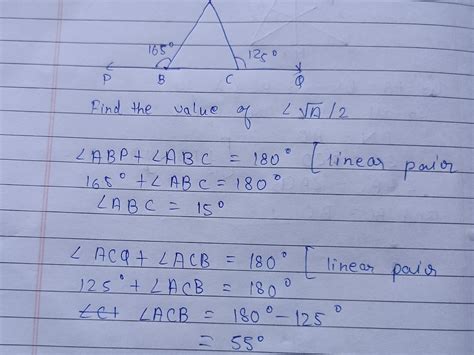 165° 125°
P B C Q
Find the value of ∠√A/2
∠ABP + ∠ABC = 180° [linear pair
165° + ∠ABC = 180°
∠ABC = 15°
∠ACQ + ∠ACB = 180° [linear pair
125° + ∠ACB = 180°
∠ACB = 180° - 125°
= 55°